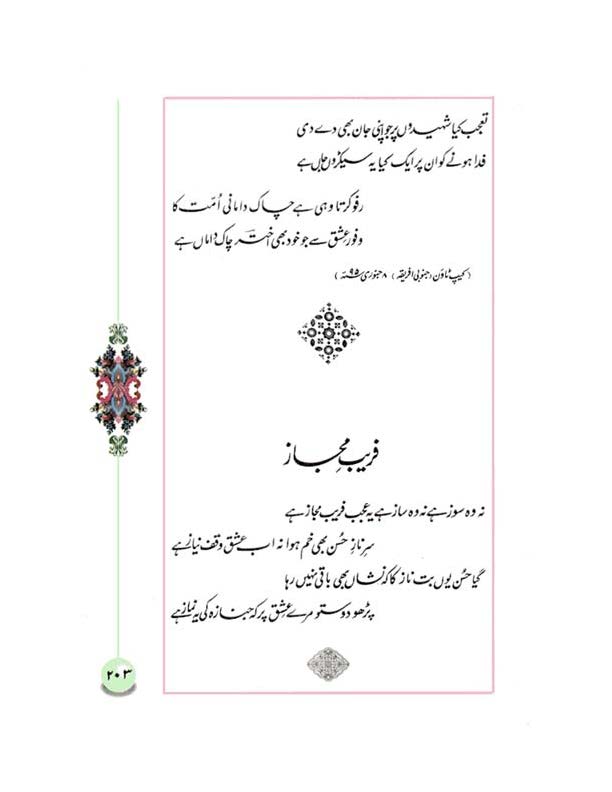 تعجب کیا شہیدوں پر جو اپنی جان بھی دے دی
فدا ہونے کو ان پر ایک کیا یہ سیکڑوں جاں ہے
رفو کرتا وہی ہے چاک دامانی اُمّت کا
وفورِ عشق سے جو خود بھی اختر چاک داماں ہے
(کیپ ٹاؤن (جنوبی افریقہ) ۸ جنوری ۹۵ء)
فریبِ مجاز
نہ وہ سوز ہے نہ وہ ساز ہے یہ عجب فریبِ مجاز ہے
سرِ نازِ حُسن بھی خم ہوا نہ اب عشق وقفِ نیاز ہے
گیا حُسن یوں بت ناز کا کہ نشاں بھی باقی نہیں رہا
پڑھو دوستو مرے عشق پر کہ جنازہ کی یہ نماز ہے
۲۰۳